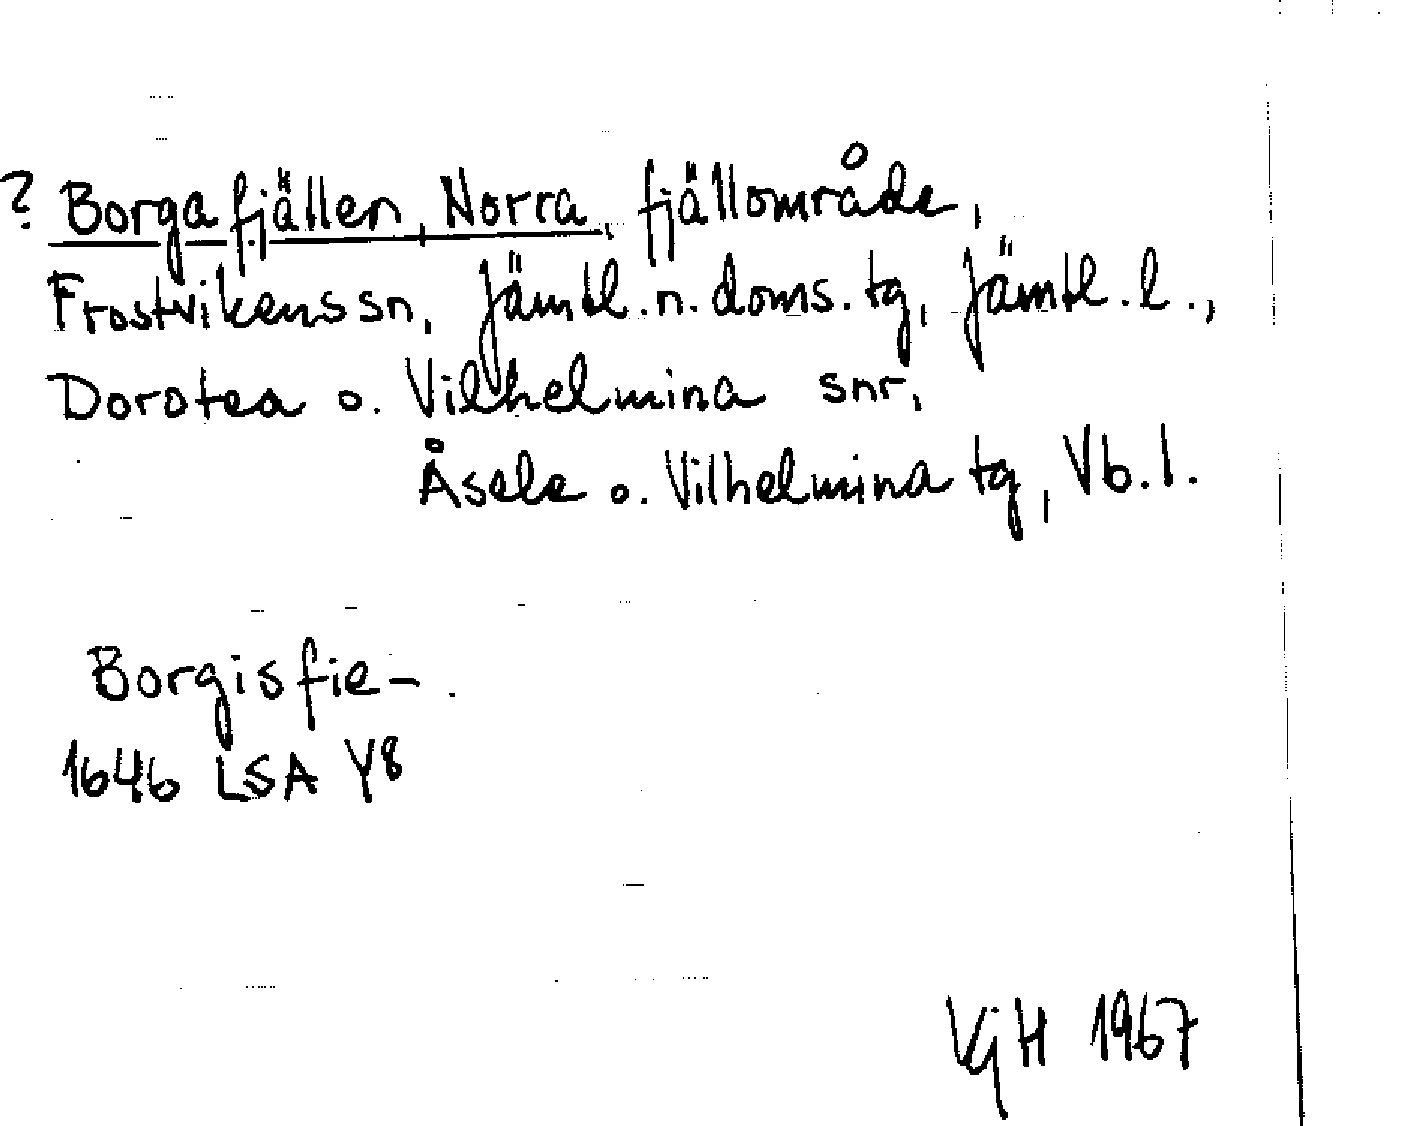 ? Borgafjällen, Norra, fjällområde,
Frostvikens sn, Jämtl. n. doms. tg, Jämtl. l.,
Dorotea o. Vilhelmina snr,
Åsele o. Vilhelmina tg, Vb. l.
Borgisfie-
1646 LSA Y8
VjH 1967